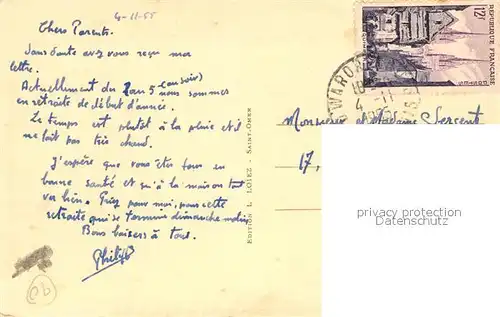 4-11-55
Chers Parents.
Sans doute avez vous reçu ma
lettre.
Actuellement du 2 au 5 (au soir) nous sommes
en retraite de début d'année.
Le temps est plutôt à la pluie et il
ne fait pas très chaud.
J'espère que vous êtes tous en
bonne santé et qu'à la maison tout
va bien. Priez pour moi, pour cette
retraite qui se termine dimanche matin.
Bons baisers à tous.
Philippe
EDITION L. LOIEZ - SAINT-OMER
12F
REPUBLIQUE FRANÇAISE
POSTES
4-11
Monsieur et Madame Sergent
17,
privacy protection
Datenschutz